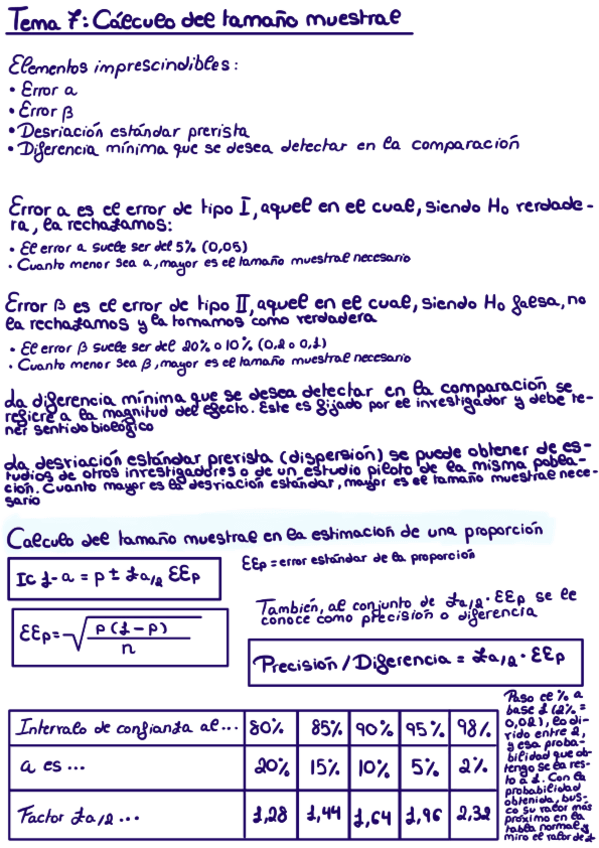 Tema 7: Cálculo del tamaño muestral
Elementos imprescindibles:
• Error α
• Error β
• Desviación estándar prevista
• Diferencia mínima que se desea detectar en la comparación
Error α es el error de tipo I, aquel en el cual, siendo H₀ verdade-
ra, la rechazamos:
• El error α suele ser del 5% (0,05)
• Cuanto menor sea α, mayor es el tamaño muestral necesario
Error β es el error de tipo II, aquel en el cual, siendo H₀ falsa, no
la rechazamos y la tomamos como verdadera
• El error β suele ser del 20% o 10% (0,2 o 0,1)
• Cuanto menor sea β, mayor es el tamaño muestral necesario
La diferencia mínima que se desea detectar en la comparación se
refiere a la magnitud del efecto. Este es fijado por el investigador y debe te-
ner sentido biológico
La desviación estándar prevista (dispersión) se puede obtener de es-
tudios de otros investigadores o de un estudio piloto de la misma pobla-
ción. Cuanto mayor es la desviación estándar, mayor es el tamaño muestral nece-
sario
Calculo del tamaño muestral en la estimación de una proporción
IC 1-α = p ± zα/2 EEp
EEp = error estándar de la proporción
EEp = √ p(1-p) / n
También, al conjunto de zα/2 · EEp se le
conoce como precisión o diferencia
Precisión / Diferencia = zα/2 · EEp
Intervalo de confianza al ... 80% 85% 90% 95% 98%
α es ... 20% 15% 10% 5% 2%
Factor zα/2 ... 1,28 1,44 1,64 1,96 2,32
Paso el % a
base 1 (2% =
0,02), lo di-
vido entre 2,
y esa proba-
bilidad que ob-
tengo se la res-
to a 1. Con la
probabilidad
obtenida, bus-
co su valor más
próximo en la
tabla normal y
miro el valor de z